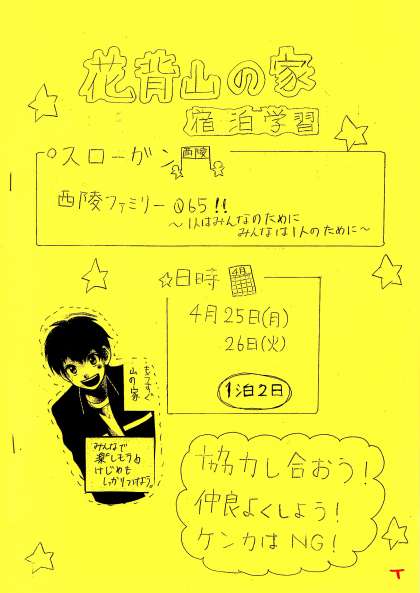 花背山の家
宿泊学習
スローガン
西陵
西陵ファミリー@65!!
～1人はみんなのために
みんなは1人のために～
日時
4月
4月25日(月)
26日(火)
1泊2日
もうすぐ
山の家
みんなで
楽しもうね
けじめも
しっかりつけよう!!
協力し合おう!
仲良くしよう!
ケンカはNG!
T